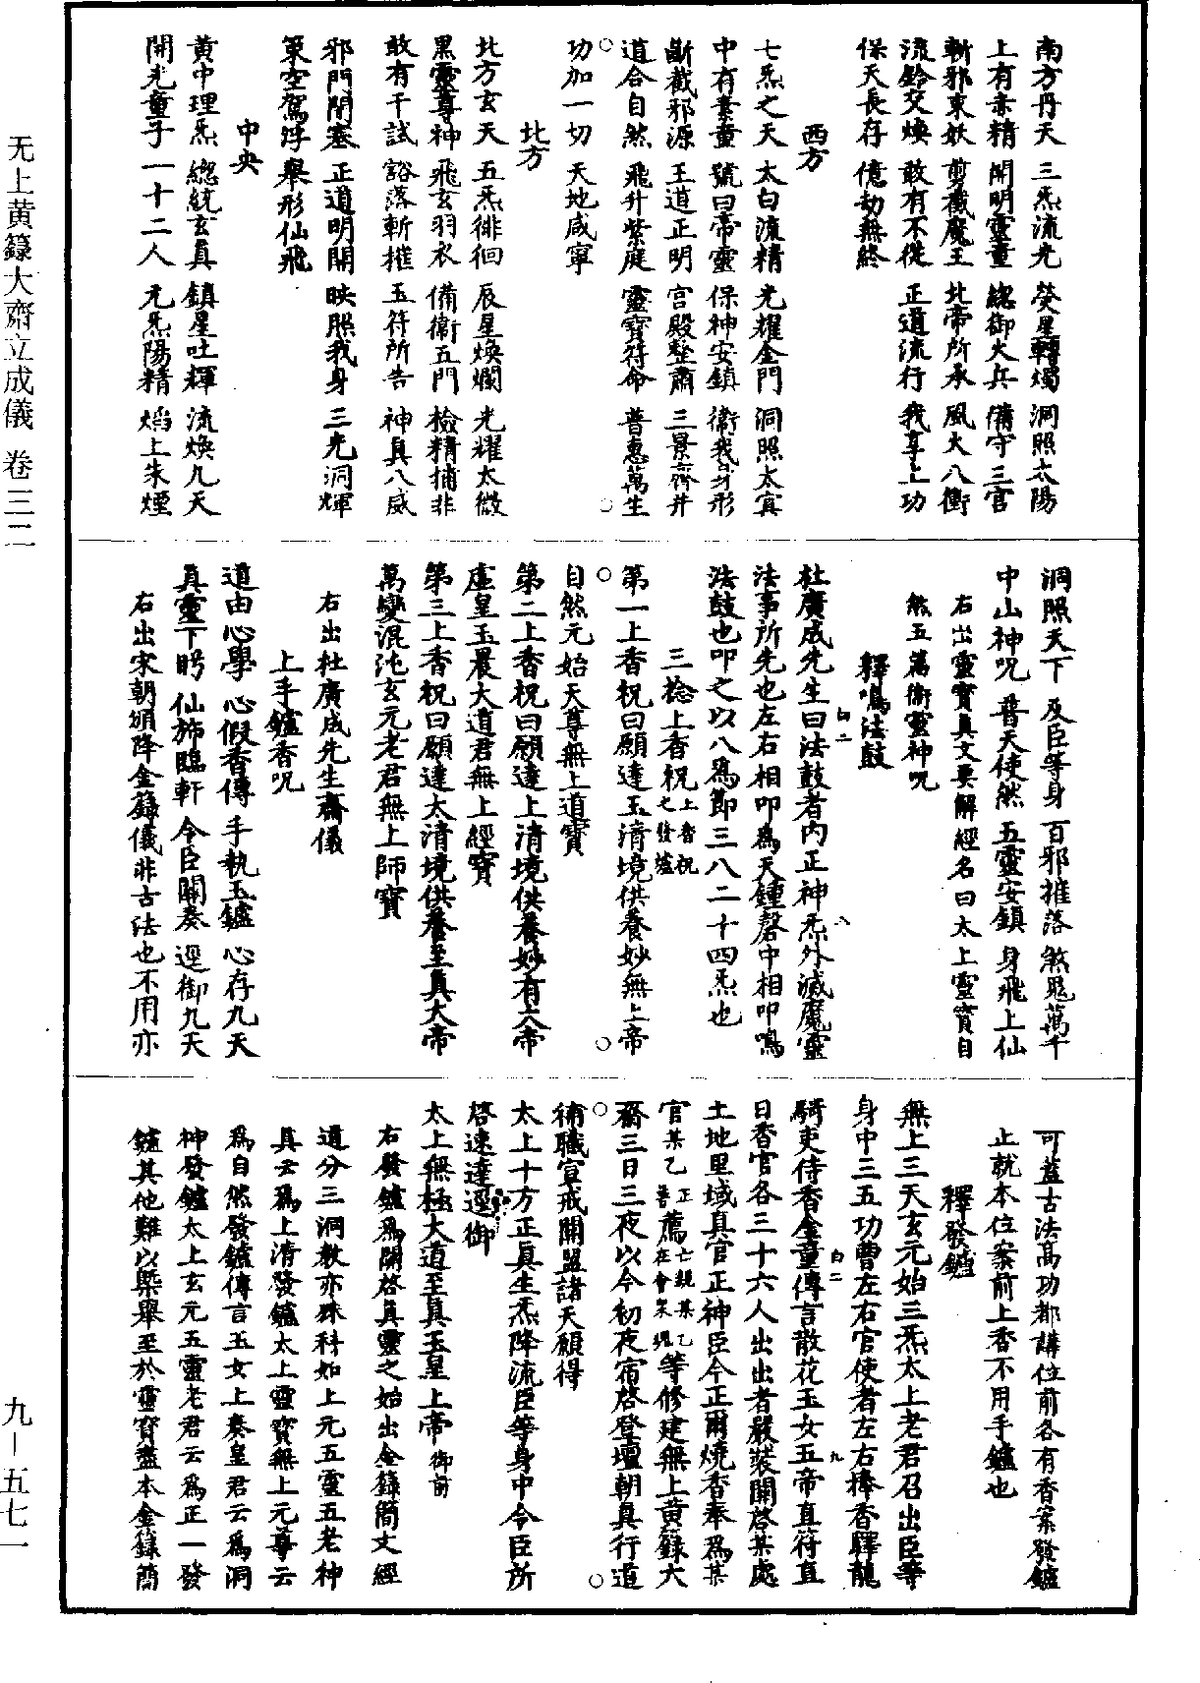 南方丹天　三炁流光　熒星轉燭　洞照太陽
上有赤精　開明靈童　總御火兵　備守三官
斬邪束妖　剪截魔王　北帝所承　風火八衝
流鈴交煥　敢有不從　正道流行　我享上功
保天長存　億劫無終
西方
七炁之天　太白流精　光耀金門　洞照太冥
中有素童　號曰帝靈　保神安鎮　衛我身形
斷截邪源　王道正明　宮殿整肅　三景齊并
道合自然　飛升紫庭　靈寶符命　普惠萬生
功加一切　天地咸寧
北方
北方玄天　五炁徘徊　辰星煥爛　光耀太微
黑靈尊神　飛玄羽衣　備衛五門　檢精捕非
敢有干試　豁落斬摧　玉符所告　神真八威
邪門閉塞　正道明開　映照我身　三光洞輝
策空駕浮　舉形仙飛
中央
黃中理炁　總統玄真　鎮星吐輝　流煥九天
開光童子　一十二人　元炁陽精　焰上朱煙
洞照天下　及臣等身　百邪摧落　煞鬼萬千
中山神呪　普天使然　五靈安鎮　身飛上仙
右出靈寶真文要解經名曰太上靈寶自
然五篇衛靈神呪
釋鳴法鼓
杜廣成先生曰法鼓者內正神炁外滅魔靈
法事所先也左右相叩為天鍾磬中相叩鳴
法鼓也叩之以八為節三八二十四炁也
三捻上香祝上香祝之發爐
第一上香祝曰願達玉清境供養妙無上帝
自然元始天尊無上道寶
第二上香祝曰願達上清境供養妙有上帝
虛皇玉晨大道君無上經寶
第三上香祝曰願達太清境供養至真大帝
萬變混沌玄元老君無上師寶
右出杜廣成先生齋儀
上手鑪香呪
道由心學　心假香傳　手執玉鑪　心存九天
真靈下盻　仙旆臨軒　今臣關奏　逕御九天
右出宋朝頒降金籙儀非古法也不用亦
可蓋古法高功都講位前各有香案發鑪
止就本位案前上香不用手鑪也
釋發鑪
無上三天玄元始三炁太上老君召出臣等
身中三五功曹左右官使者左右捧香驛龍
騎吏侍香金童傳言散花玉女五帝直符直
日香官各三十六人出出者嚴裝關啓某處
土地里域真官正神臣今正爾燒香奉為某
官某乙正薦亡親某乙普薦在會眾魂等修建無上黃籙大
齋三日三夜以今初夜宿啓登壇朝真行道
補職宣戒關盟諸天願得
太上十方正真生炁降流臣等身中令臣所
啓速達逕御
太上無極大道至真玉皇上帝御前
右發鑪為關啓真靈之始出金籙簡文經
道分三洞教亦殊科如上元五靈五老神
真云為上清發鑪太上靈寶無上元尊云
為自然發鑪傳言玉女上奏皇君云為洞
神發鑪太上玄元五靈老君云為正一發
鑪其他難以槩舉至於靈寶盡本金籙簡
无上黄籙大齋立成儀　卷三二
九—五七一